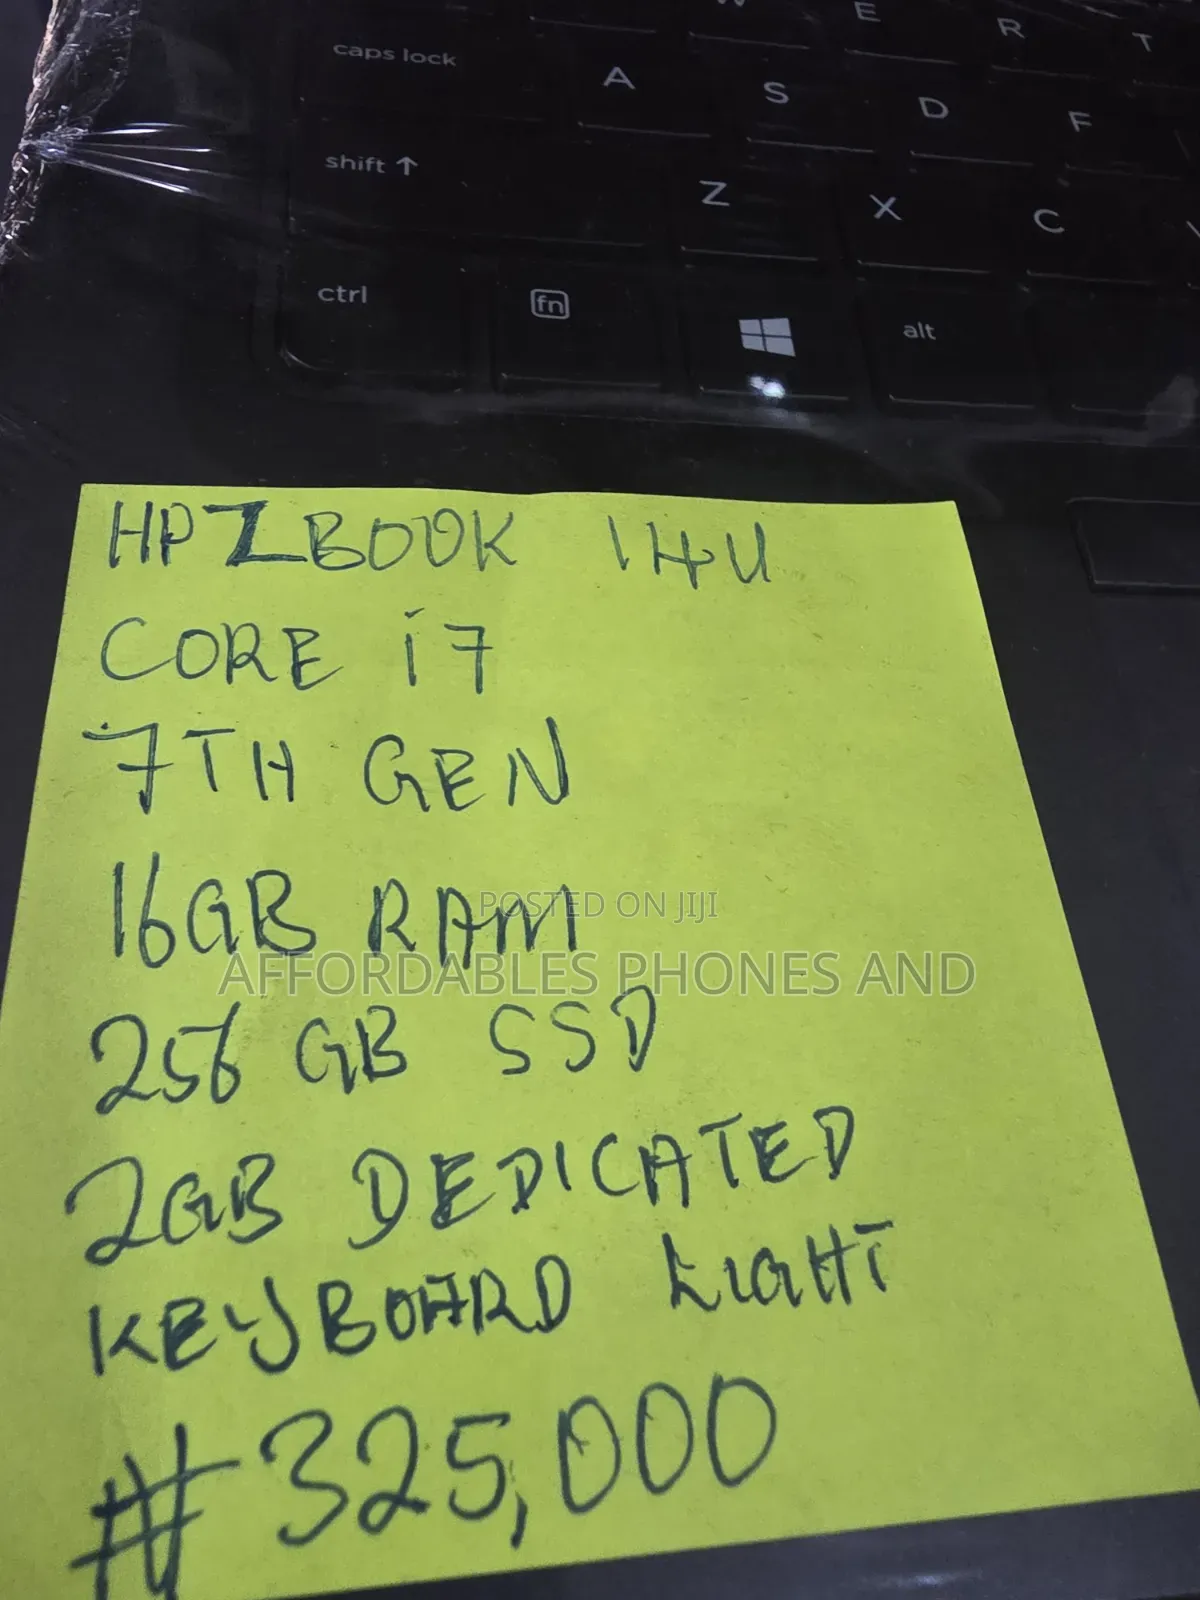 W E R T
caps lock A S D F
shift ↑ Z X C
ctrl fn alt
HP ZBOOK 14U
CORE i7
7TH GEN
16GB RAM
POSTED ON JIJI
AFFORDABLES PHONES AND
256 GB SSD
2GB DEDICATED
KEYBOARD LIGHT
₦325,000